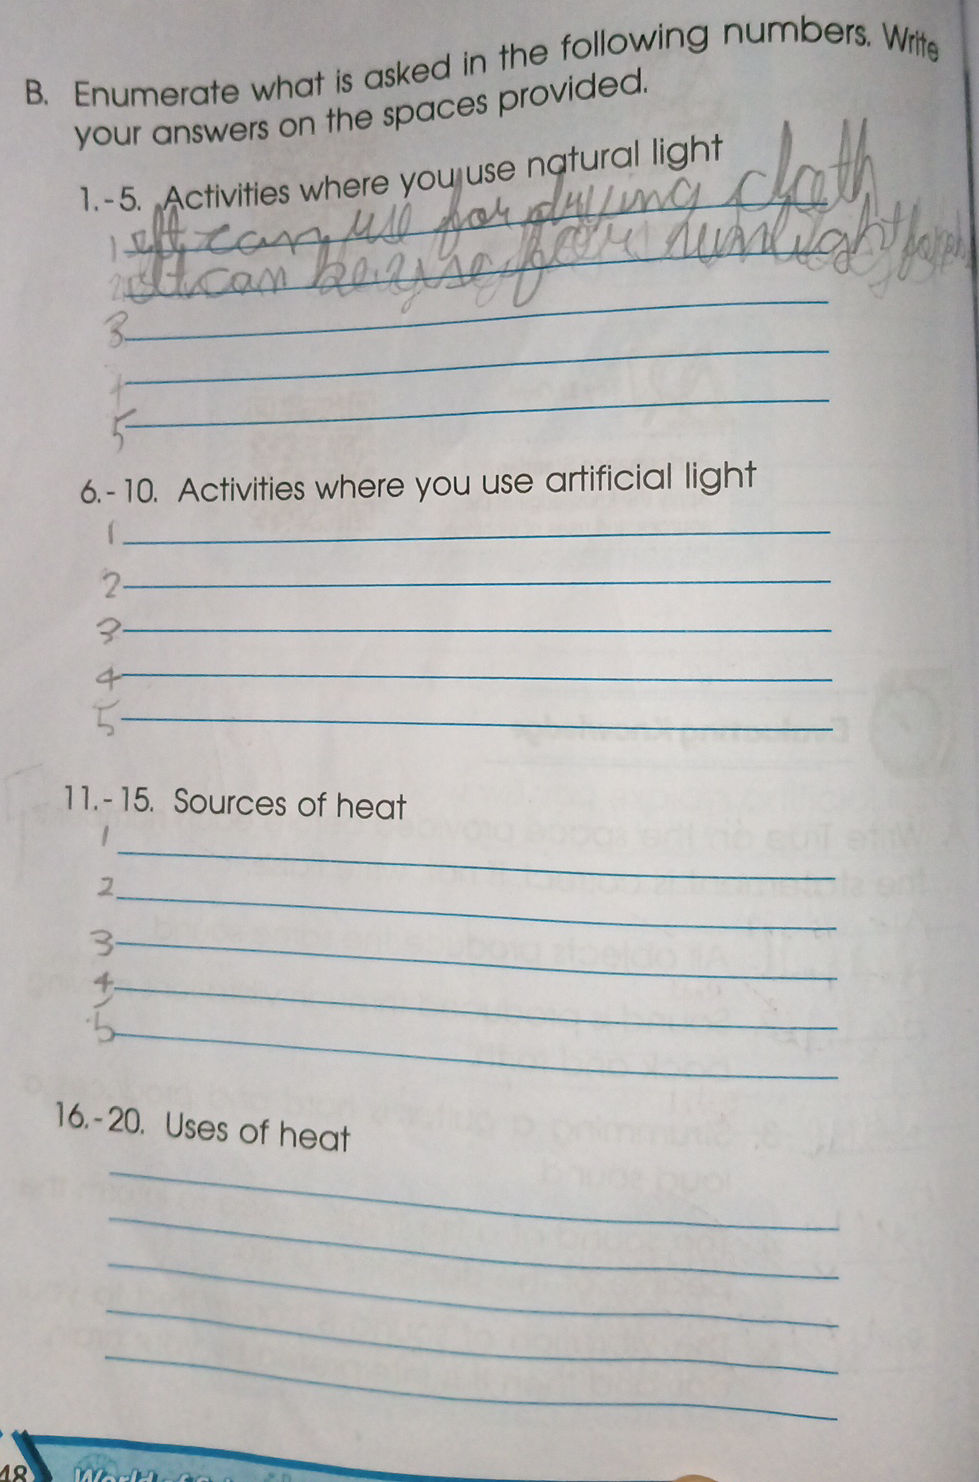 B. Enumerate what is asked in the following numbers. Write
your answers on the spaces provided.
1.-5. Activities where you use natural light
1 It can use for drying cloth
2 It can be use for sunlight for
3
4
5
6.-10. Activities where you use artificial light
1
2
3
4
5
11.-15. Sources of heat
1
2
3
4
5
16.-20. Uses of heat
48